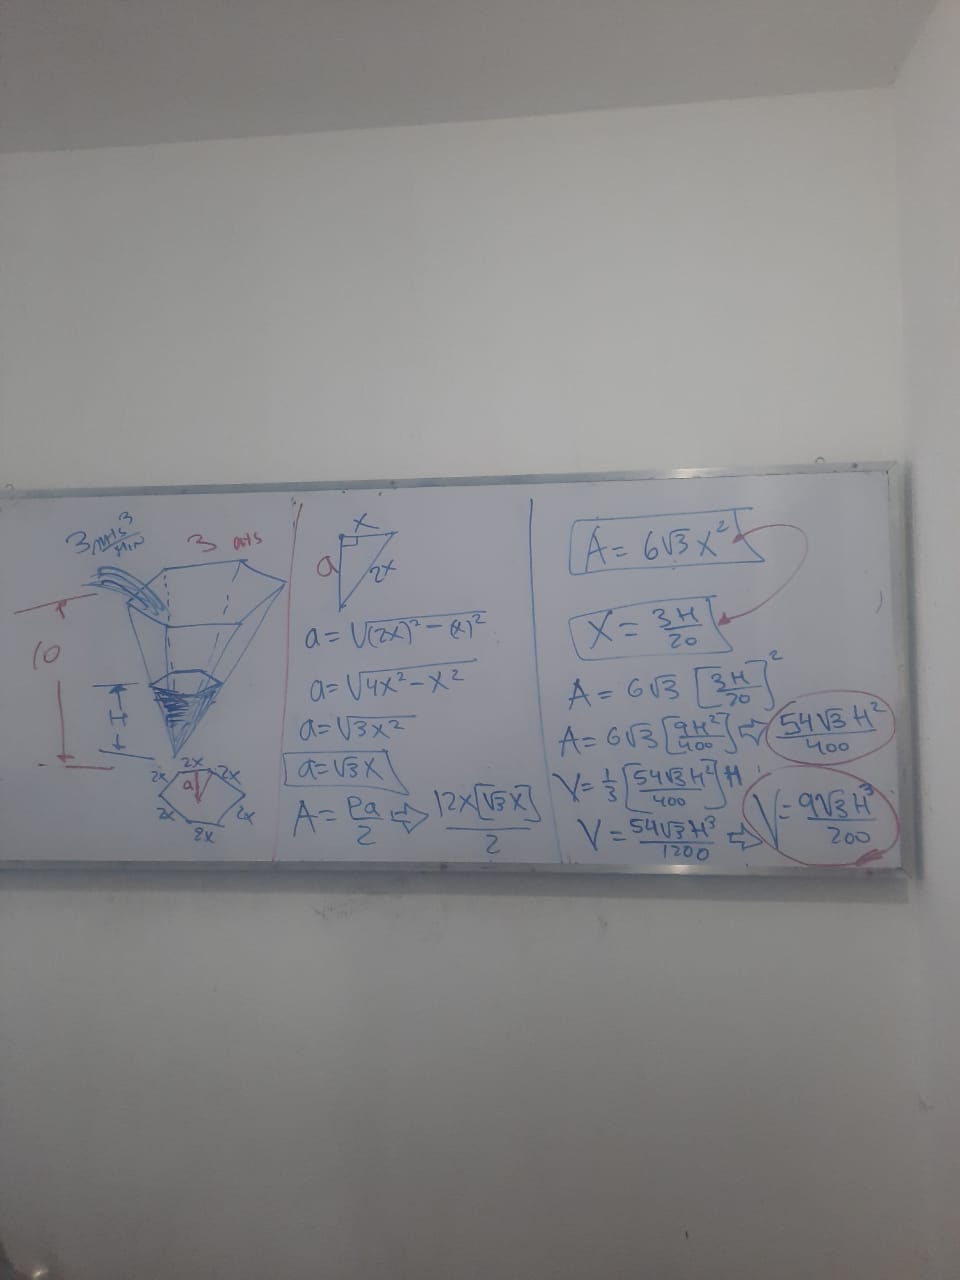 3 mts³/min
3 mts
10
H
2x
2x 2x
a
2x 2x
2x
x
a 2x
a = √(2x)² - (x)²
a = √4x² - x²
a = √3x²
a = √3x
A = Pa/2 ⇨ 12x[√3x]/2
A = 6√3x²
x = 3H/20
A = 6√3 [3H/20]²
A = 6√3 [9H²/400] ⇨ 54√3H²/400
V = 1/3 [54√3H²/400] H
V = 54√3H³/1200 ⇨ V = 9√3H³/200